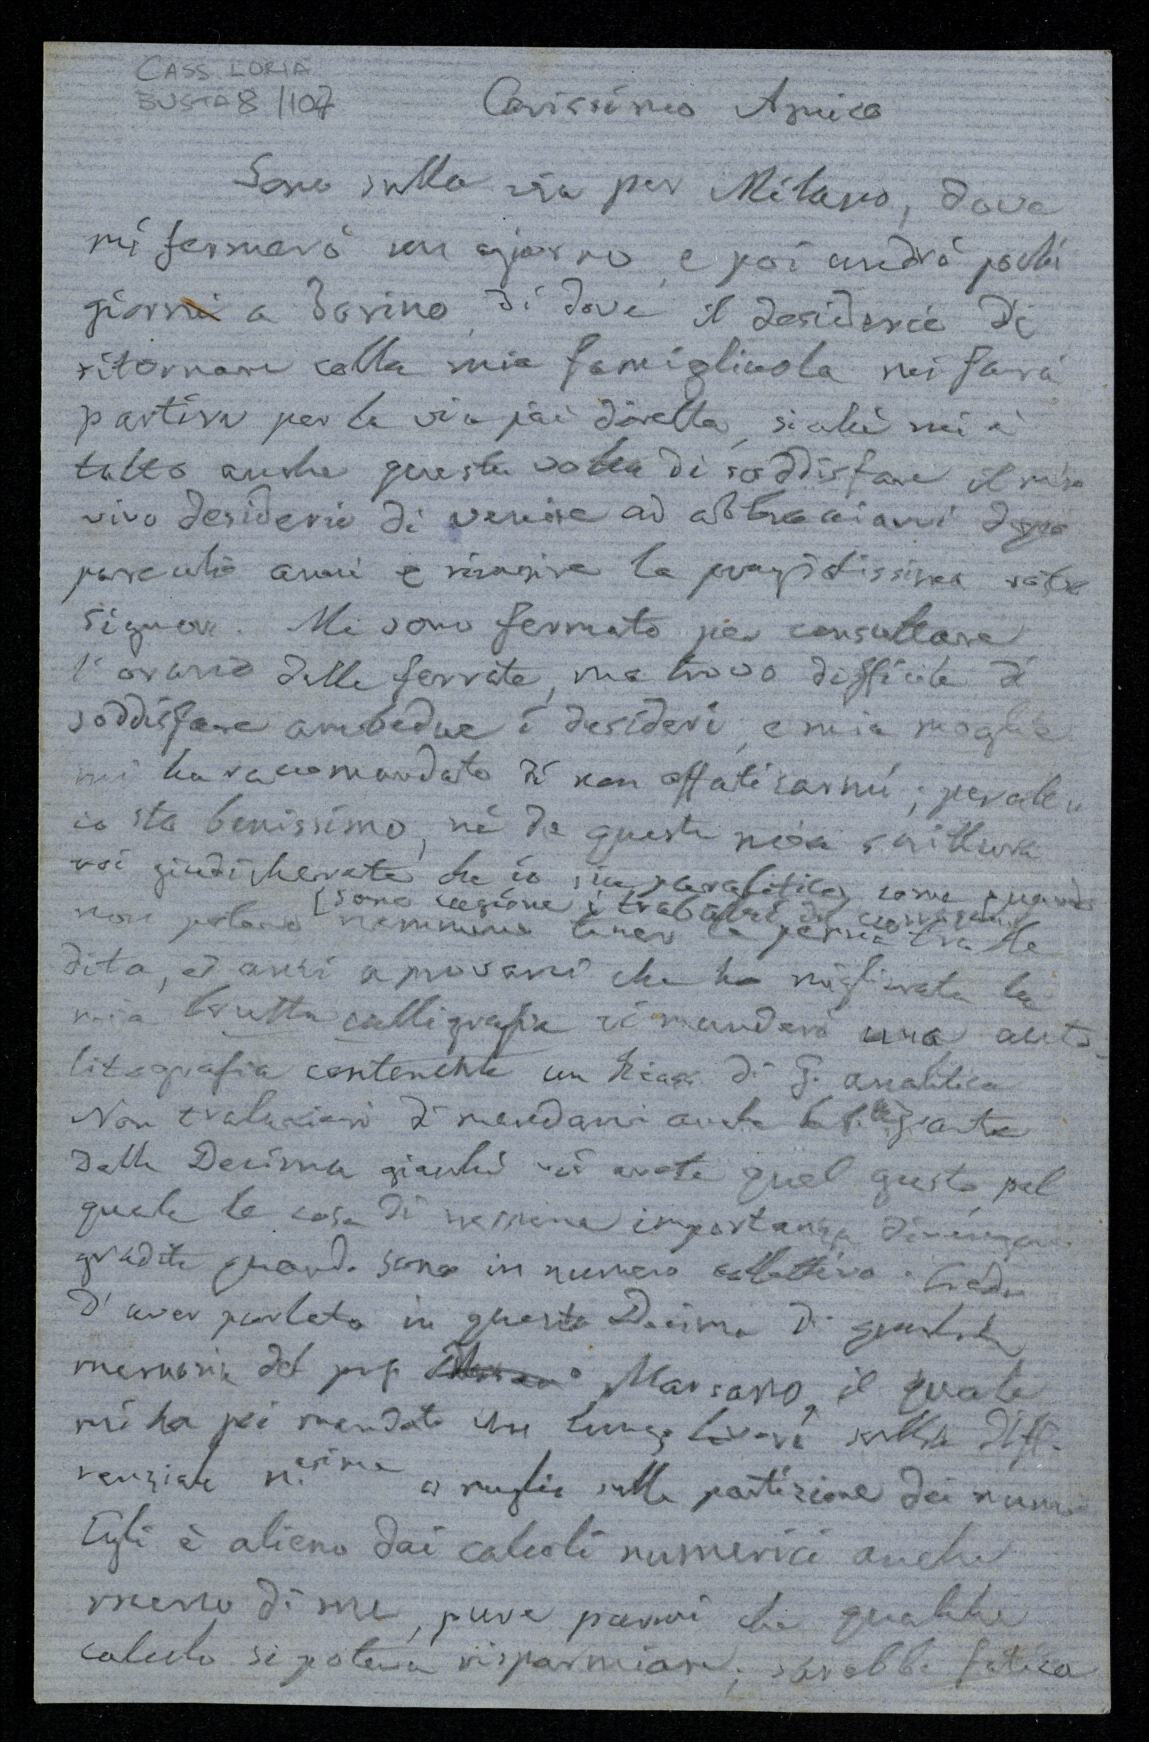 CASS. LORIA
BUSTA 8 /107
Carissimo Amico
Sono sulla via per Milano, dove
mi fermerò un giorno, e poi andrò pochi
giorni a Torino, di dove il desiderio di
ritornare colla mia famigliuola mi farà
partire per la via più diretta, sicchè mi è
tolto anche questa volta di soddisfare il mio
vivo desiderio di venire ad abbracciarvi dopo
parecchi anni e riverire la pregiatissima vostra
signora. Mi sono fermato per consultare
l'orario delle ferrate, ma trovo difficile di
soddisfare ambedue i desideri, e mia moglie
mi ha raccomandato di non affaticarmi; peraltro
io sto benissimo, nè da questa mia scrittura
voi giudicherete che io sia paralitico come quando
[sono cagione i traballi del
non potevo nemmeno tener la penna tra le
dita, ed anzi a provarvi che ha migliorato la
mia brutta calligrafia vi manderò una auto-
litografia contenente un di g. analitica
Non tralascierò di mandarvi anche la parte
della Decima giacchè voi avete quel gusto pel
quale le cose di nessuna importanza divengono
gradite quando sono in numero collettivo. Credo
d'aver parlato in questa Decima di qualche
memoria del prof. Marsano, il quale
mi ha poi mandato un lungo lavoro sulla diffe-
renziale n.esima o meglio sulla partizione dei numeri
Egli è alieno dai calcoli numerici anche
meno di me, pure parmi che qualche
calcolo si poteva risparmiare; sarebbe fatica